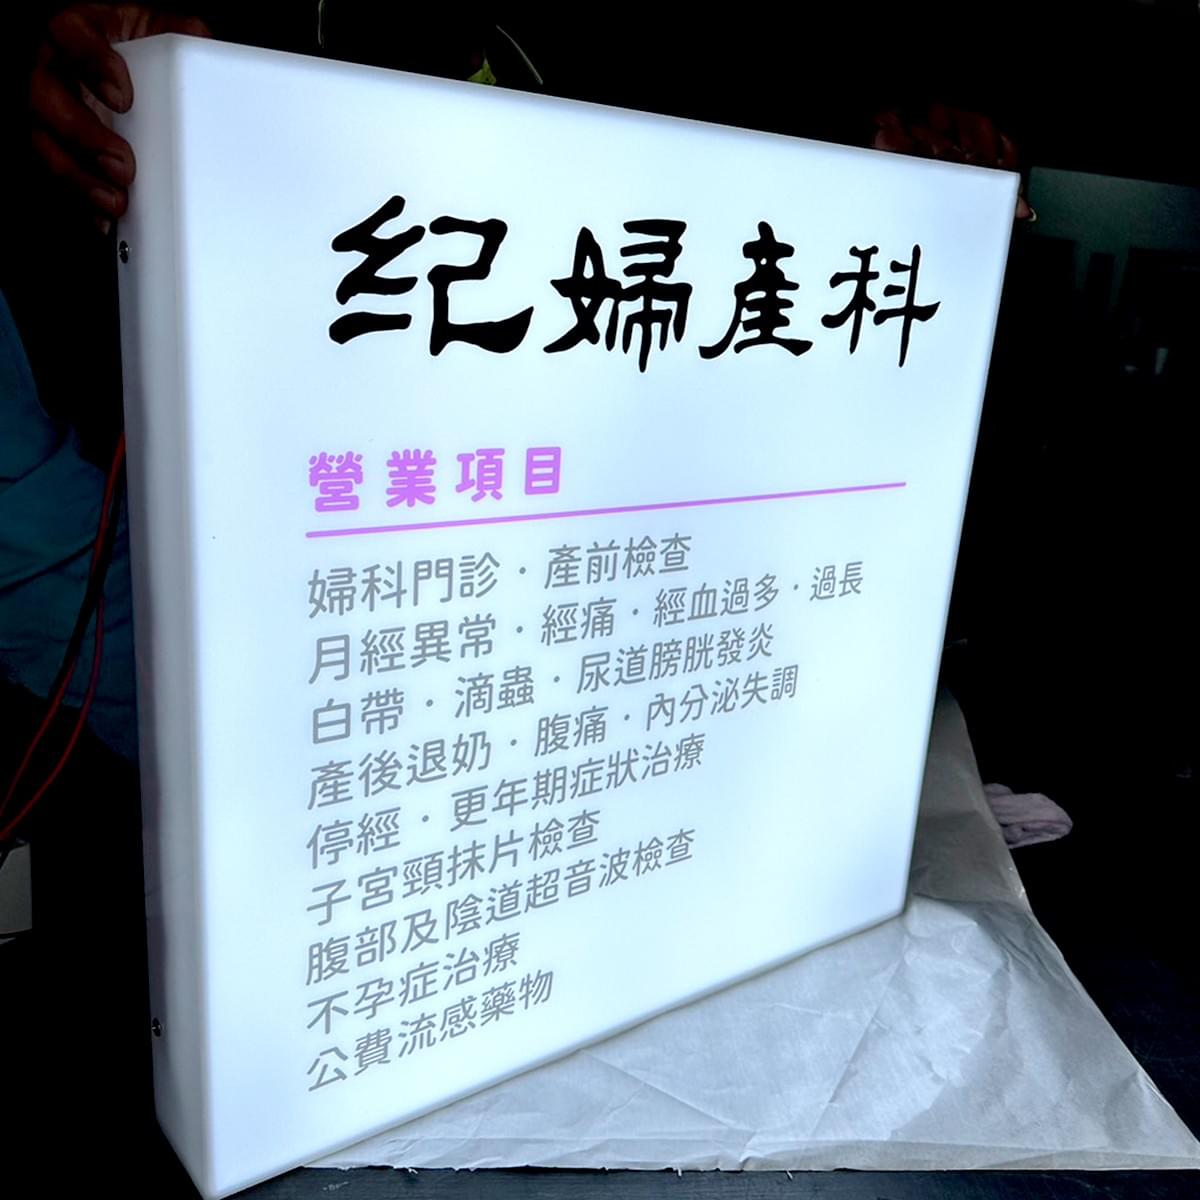 紀婦產科
營業項目
婦科門診·產前檢查
月經異常·經痛·經血過多·過長
白帶·滴蟲·尿道膀胱發炎
產後退奶·腹痛·內分泌失調
停經·更年期症狀治療
子宮頸抹片檢查
腹部及陰道超音波檢查
不孕症治療
公費流感藥物